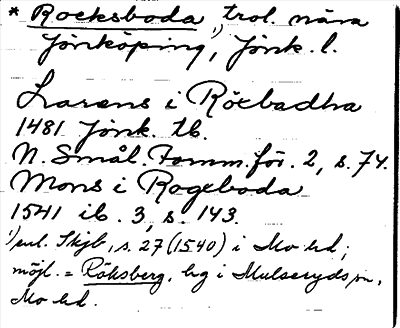 * Rocksboda, ¹) trol. nära
Jönköping, Jönk. l.
Larens i Röxbadha
1481 Jönk. tb.
N. Smål. Fornm. för. 2, s. 74.
Mons i Rogeboda
1541 ib. 3, s. 143.
¹) enl. Skjb, s. 27 (1540) i Mo hd;
möjl. = Röksberg, by i Mulseryds sn,
Mo hd.